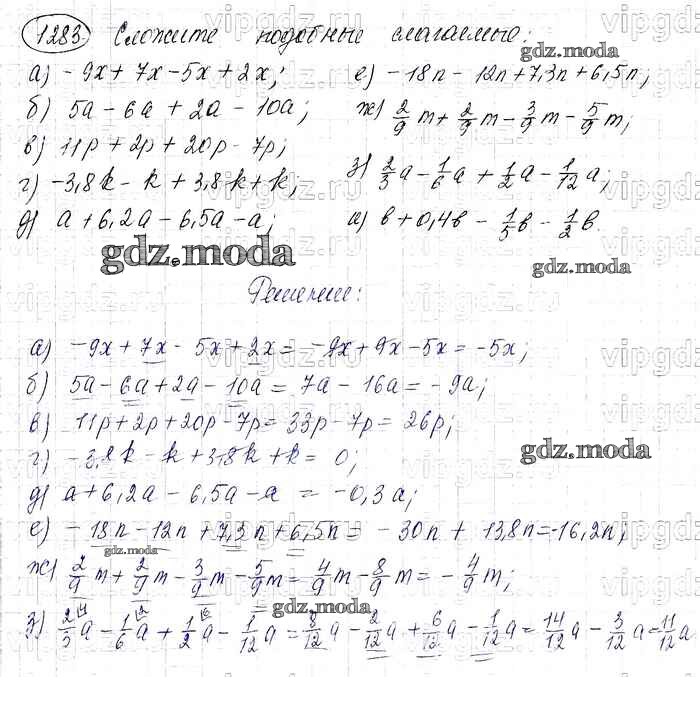 1283. Сложите подобные слагаемые:
gdz.moda
а) -9x+7x-5x+2x; е) -18n-12n+7,3n+6,5n;
б) 5a-6a+2a-10a; ж) 2/9 m + 2/9 m - 3/9 m - 5/9 m;
в) 11p+2p+20p-7p;
г) -3,8k-k+3,8k+k; з) 2/3 a - 1/6 a + 1/2 a - 1/12 a;
д) a+6,2a-6,5a-a; и) b+0,4b - 1/5 b - 1/2 b.
gdz.moda
gdz.moda
Решение:
а) -9x+7x-5x+2x= -9x+9x-5x=-5x;
б) 5a-6a+2a-10a= 7a-16a=-9a;
в) 11p+2p+20p-7p= 33p-7p= 26p;
г) -3,8k-k+3,8k+k= 0;
gdz.moda
д) a+6,2a-6,5a-a = -0,3a;
е) -18n-12n+7,3n+6,5n= -30n+13,8n=-16,2n;
gdz.moda
ж) 2/9 m + 2/9 m - 3/9 m - 5/9 m = 4/9 m - 8/9 m = - 4/9 m;
gdz.moda
з) 2/3 a - 1/6 a + 1/2 a - 1/12 a = 8/12 a - 2/12 a + 6/12 a - 1/12 a = 14/12 a - 3/12 a = 11/12 a